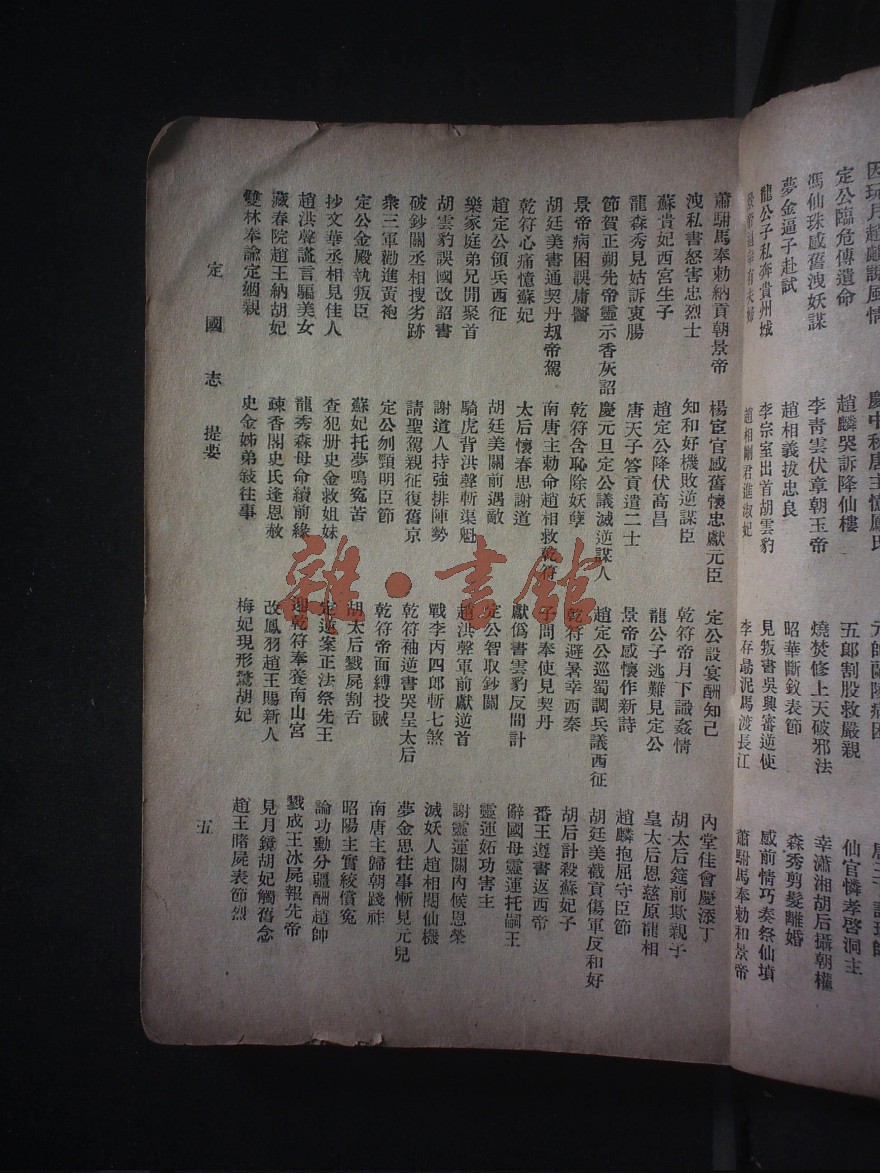 因玩月趙郎說風情 慶中秋唐主憶鳳氏 元帥蘭陵病困
定公臨危傳遺命 趙麟哭訴降仙樓 五郎割股救嚴親 仙官憐孝啓洞主
馮仙珠感舊洩妖謀 李靑雲伏章朝玉帝 燒焚修上天破邪法 幸瀟湘胡后攝朝權
夢金逼子赴試 趙相義拔忠良 昭華斷釵表節 森秀剪髮離婚
龍公子私奔貴州城 李宗室出首胡雲豹 見叛書吳興審逆使 感前情巧奏祭仙墳
趙相剛君進淑妃 李存勗泥馬渡長江 蕭駙馬奉勅和景帝
蕭駙馬奉勅納貢朝景帝 楊宦官感舊懷忠獻元臣 定公設宴酬知己 內堂佳會慶添丁
洩私書怒害忠烈士 知和好機敗逆謀臣 乾符帝月下識姦情 胡太后筵前欺親子
蘇貴妃西宮生子 趙定公降伏高昌 龍公子逃難見定公 皇太后恩慈原龍相
龍森秀見姑訴衷腸 唐天子答貢遣二士 景帝感懷作新詩 趙麟抱屈守臣節
節賀正朔先帝靈示香灰詔 慶元旦定公議滅逆謀人 趙定公巡蜀調兵議西征 胡廷美截貢傷軍反和好
景帝病困誤庸醫 乾符含恥除妖孽 乾符避暑幸西秦 胡后計殺蘇妃子
胡廷美書通契丹刼帝駕 南唐主勅命趙相救乾符 子問奉使見契丹 番王遵書返西帝
乾符心痛憶蘇妃 太后懷春思謝道 獻僞書雲豹反間計 辭國母靈運托嗣王
趙定公領兵西征 胡廷美關前遇敵 定公智取鈔關 靈運妬功害主
樂家庭弟兄閒聚首 騎虎背洪聲斬渠魁 趙洪聲軍前獻逆首 謝靈運關內候恩榮
胡雲豹誤國改詔書 謝道人持強排陣勢 戰李丙四郎斬七煞 滅妖人趙相閱仙機
破鈔關丞相搜劣跡 請聖駕親征復舊京 乾符袖逆書哭呈太后 夢金思往事慚見元兒
衆三軍勸進黃袍 定公刎頸明臣節 乾符帝面縛投誠 南唐主歸朝踐祚
定公金殿執叛臣 蘇妃托夢鳴冤苦 胡太后戮屍割舌 昭陽主實絞償冤
抄文華丞相見佳人 查犯册史金救姐妹 定逆案正法祭先王 論功勳分疆酬趙帥
趙洪聲謊言騙美女 龍秀森母命續前緣 迎乾符奉養南山宮 戮成王冰屍報先帝
藏春院趙王納胡妃 疎香閣史氏逢恩赦 改鳳羽趙王賜新人 見月鏡胡妃觸舊念
雙林奉諭定姻親 史金姊弟敍往事 梅妃現形驚胡妃 趙王賭屍表節烈
定國志 提要 五
雜·書館